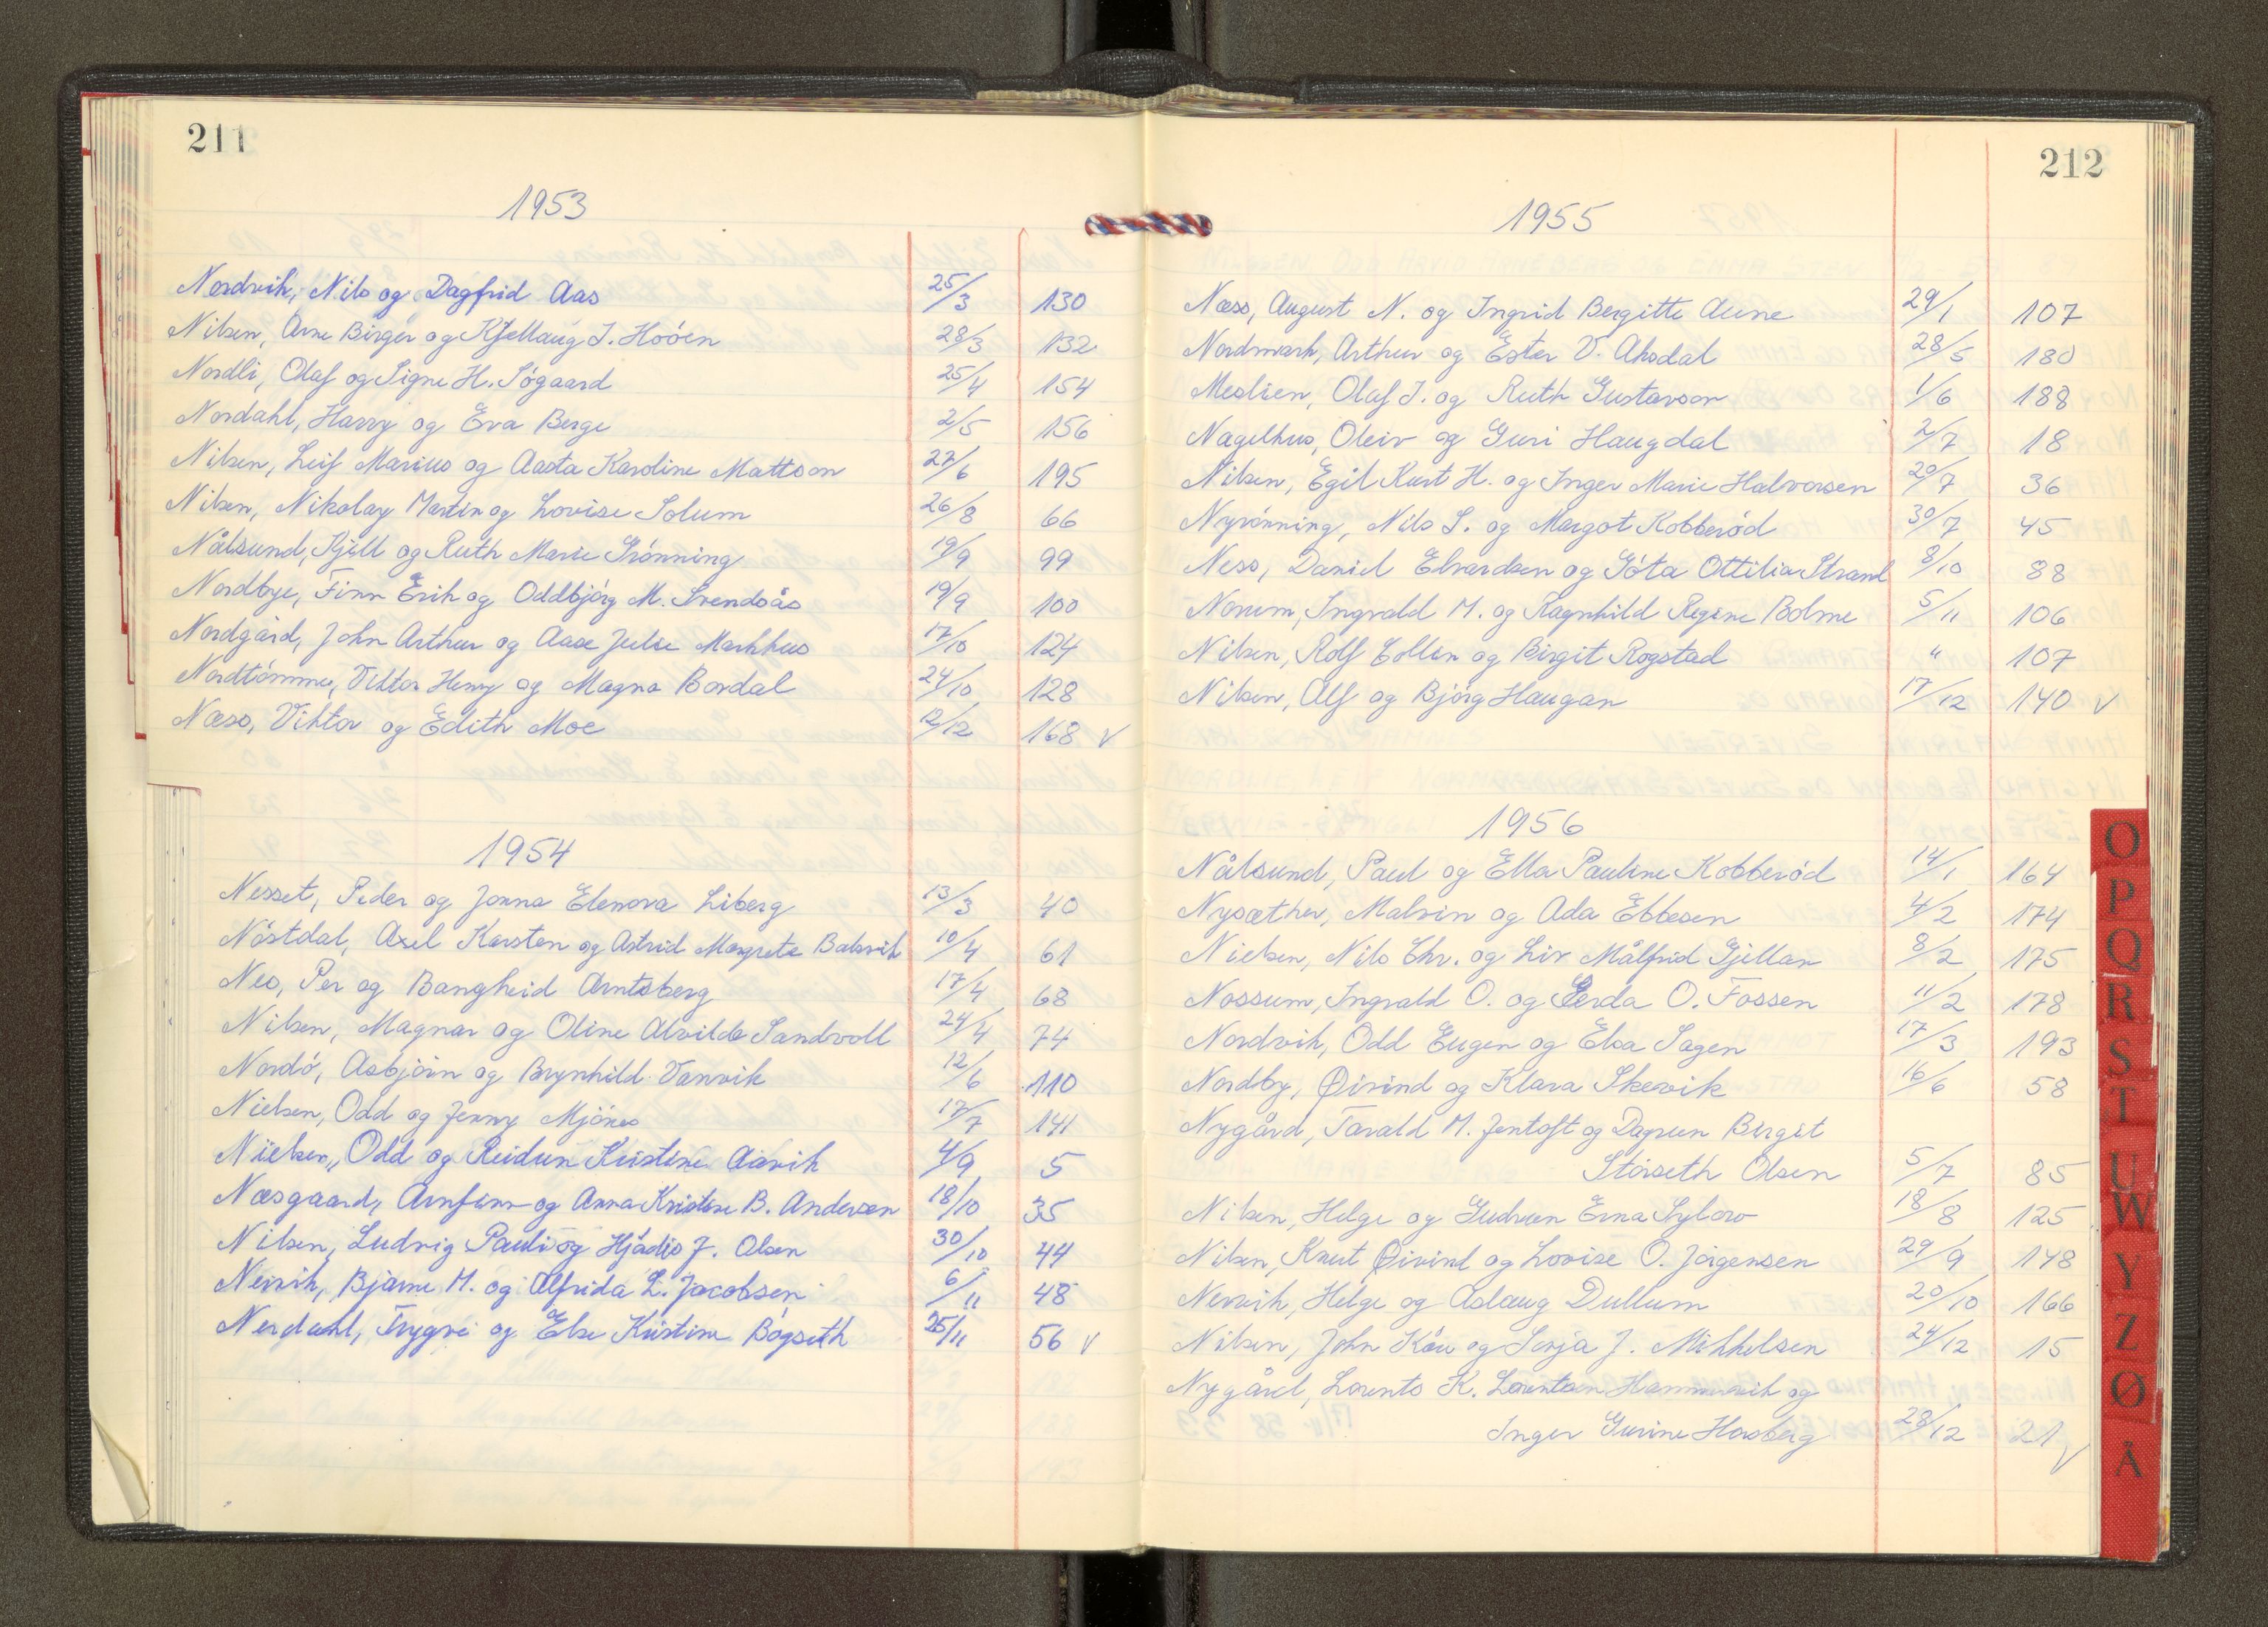 211
1953
Nordvik, Nils og Dagfrid Aas 25/3 130
Nilsen, Arne Birger og Kjellaug J. Hoöen 28/3 132
Nordli, Olaf og Signe H. Sógaard 25/4 154
Nordahl, Harry og Eva Berge 2/5 156
Nilsen, Leif Marius og Aasta Karoline Mattson 27/6 195
Nilsen, Nikolay Martin og Lovise Solum 26/8 66
Nålsund, Kjell og Ruth Marie Grónning 19/9 99
Nordbye, Finn Erik og Oddbjórg M. Svendsås 19/9 100
Nordgård, John Arthur og Aase Julie Markhus 17/10 124
Nordtómme, Viktor Henry og Magna Bordal 24/10 128
Næss, Viktor og Edith Moe 12/12 168 v
1954
Nesset, Peder og Jonna Elenora Liberg 13/3 40
Nóstdal, Axel Karsten og Astrid Margrete Balsvik 10/4 61
Nes, Per og Bangheid Arntsberg 17/4 68
Nilsen, Magnar og Oline Alvilde Sandvoll 24/4 74
Nordó, Asbjórn og Brynhild Vanvik 12/6 110
Nielsen, Odd og Jenny Mjónes 17/7 141
Nielsen, Odd og Reidun Kristine Aarvik 4/9 5
Næsgaard, Arnfinn og Anna Kristine B. Andersen 18/10 35
Nilsen, Ludvig Pauli og Hjådis J. Olsen 30/10 44
Nervik, Bjarne M. og Alfrida L. Jacobsen 6/11 48
Nerdahl, Trygve og Else Kristine Bógseth 25/11 56 v
212
1955
Næss, August N. og Ingrid Bergitte Aune 29/1 107
Nordmark, Arthur og Ester V. Aksdal 28/5 180
Meslien, Olaf J. og Ruth Gustavson 1/6 188
Nagelhus, Oleiv og Guri Haugdal 2/7 18
Nilsen, Egil Kurt H. og Inger Marie Halvorsen 20/7 36
Nyrónning, Nils S. og Margot Kobberód 30/7 45
Ness, Daniel Edvardsen og Góta Ottilia Strand 8/10 88
Norum, Ingvald M. og Ragnhild Regine Bolme 5/11 106
Nilsen, Rolf Collin og Birgit Rogstad " 107
Nilsen, Alf og Bjórg Haugan 17/12 140 v
1956
Nålsund, Paul og Ella Pauline Kobberód 14/1 164
Nysæther, Malvin og Ada Ebbesen 4/2 174
Nielsen, Nils Chr. og Liv Målfrid Gjellan 8/2 175
Nossum, Ingvald O. og Gerda O. Fossen 11/2 178
Nordvik, Odd Eugen og Elsa Sagen 17/3 193
Nordby, Øivind og Klara Skeovik 16/6 58
Nygård, Tarald M. Jentoft og Dagrun Birgit
Stórseth Olsen 5/7 85
Nilsen, Helge og Gudrun Erna Sybero 18/8 125
Nilsen, Knut Øivind og Lovise O. Jórgensen 29/9 148
Nervik, Helge og Aslaug Dullum 20/10 166
Nilsen, John Kåre og Sonja J. Mikkelsen 24/12 15
Nygård, Lorents K. Lorentsen Hammervik og
Inger Gurine Hosberg 28/12 21 v
O
P
Q
R
S
T
U
W
Y
Z
Ø
A